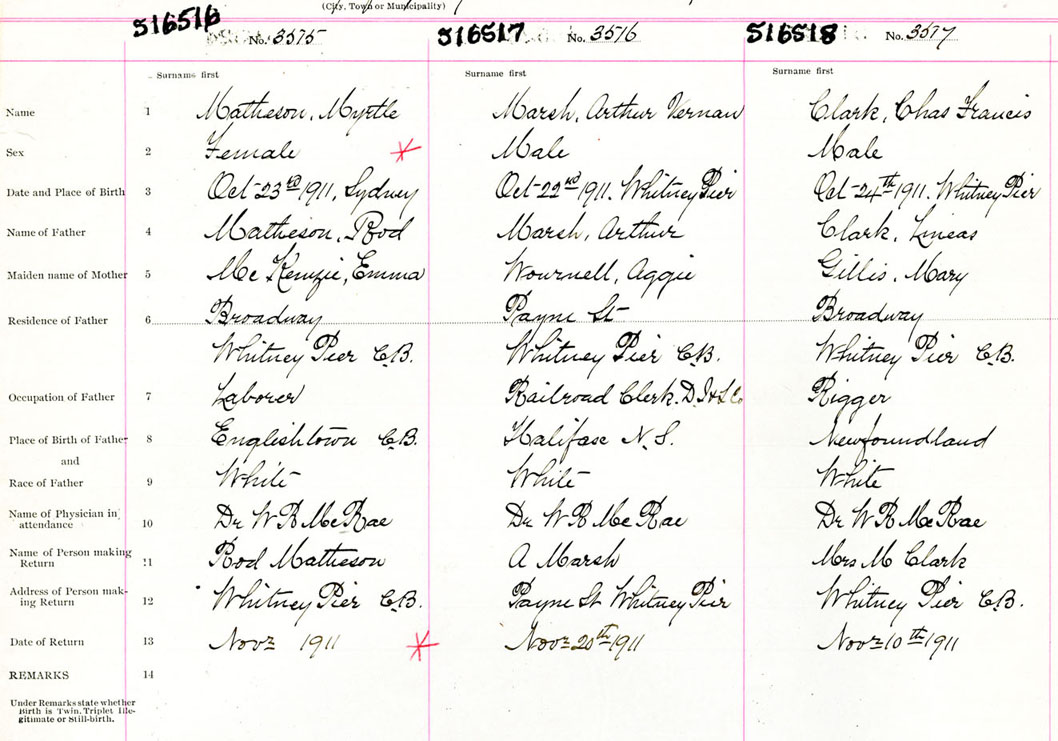 (City, Town or Municipality)
516516 516517 516518
No. 3575 No. 3576 No. 3577
Surname first Surname first Surname first
Name 1 Matheson, Myrtle Marsh, Arthur Vernan Clark, Chas Francis
Sex 2 Female Male Male
Date and Place of Birth 3 Oct-23rd 1911, Sydney Oct-22nd 1911. Whitney Pier Oct-24th 1911. Whitney Pier
Name of Father 4 Matheson, Rod Marsh, Arthur Clark, Lineas
Maiden name of Mother 5 Mc Kenzie, Emma Wournell, Aggie Gillis, Mary
Residence of Father 6 Broadway Payne St Broadway
Whitney Pier C.B. Whitney Pier C.B. Whitney Pier C.B.
Occupation of Father 7 Laborer Railroad Clerk. D.I&S.Co Rigger
Place of Birth of Father 8 Englishtown C.B. Halifax N.S. Newfoundland
and
Race of Father 9 White White White
Name of Physician in
attendance 10 Dr W R McRae Dr W R McRae Dr W R McRae
Name of Person making
Return 11 Rod Matheson A Marsh Mrs M Clark
Address of Person mak-
ing Return 12 Whitney Pier C.B. Payne St Whitney Pier Whitney Pier C.B.
Date of Return 13 Nov 1911 Nov 20th 1911 Nov 10th 1911
REMARKS 14
Under Remarks state whether
Birth is Twin, Triplet Ille-
gitimate or Still-birth.